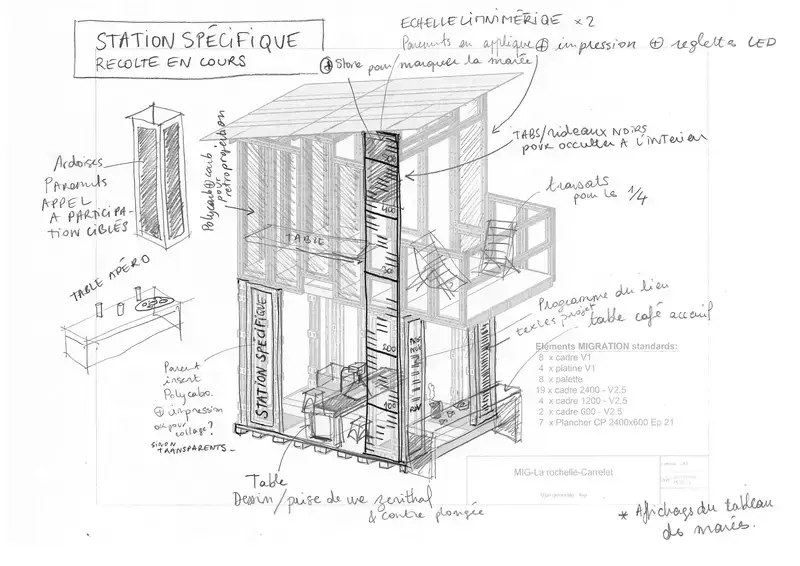 STATION SPÉCIFIQUE
RECOLTE EN COURS
ECHELLE LIMNIMÉRIQE x 2
Parements en applique ⊕ impression ⊕ reglettes LED
⊕ Store pour marquer la marée
TABS/rideaux NOIRS
POUR OCCULTER A L'INTERIEUR
transats
pour le 1/4
Ardoises
PAREMENTS
APPEL
A PARTICIPA-
TION CIBLÉS
Polycarb@carb.
pour
retroprojection
TABLE
400
30
200
100
TABLE APÉRO
STATION SPÉCIFIQUE
Programme du lieu
textes projet
table café accueil
Eléments MIGRATION standards:
8 x cadre V1
4 x platine V1
8 x palette
19 x cadre 2400 - V2.5
4 x cadre 1200 - V2.5
2 x cadre 600 - V2.5
7 x Plancher CP 2400x600 Ep 21
Parement
insert
Polycarbo.
⊕ impression
ok pour
collage?
SINON
TRANSPARENTS_
Table
Dessin / prise de vue zenithal
& contre plongée
MIG-La rochelle-Carrelet
* Affichage du tableau
des marées.